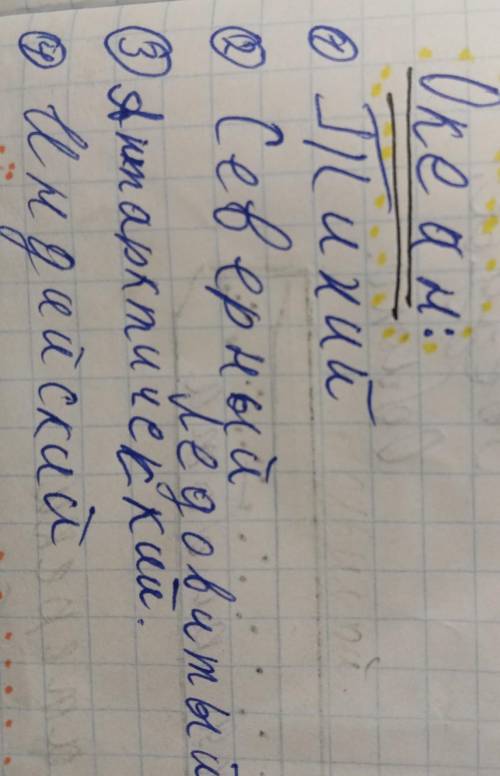 Океан:
① Тихий
② Северный
Ледовитый
③ Антарктический.
④ Индийский